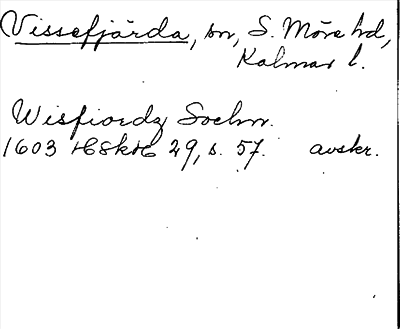 Vissefjärda, sn, S. Möre hd,
Kalmar l.
Wisfiordz Sochn.
1603 HSkH 29, s. 57. avskr.